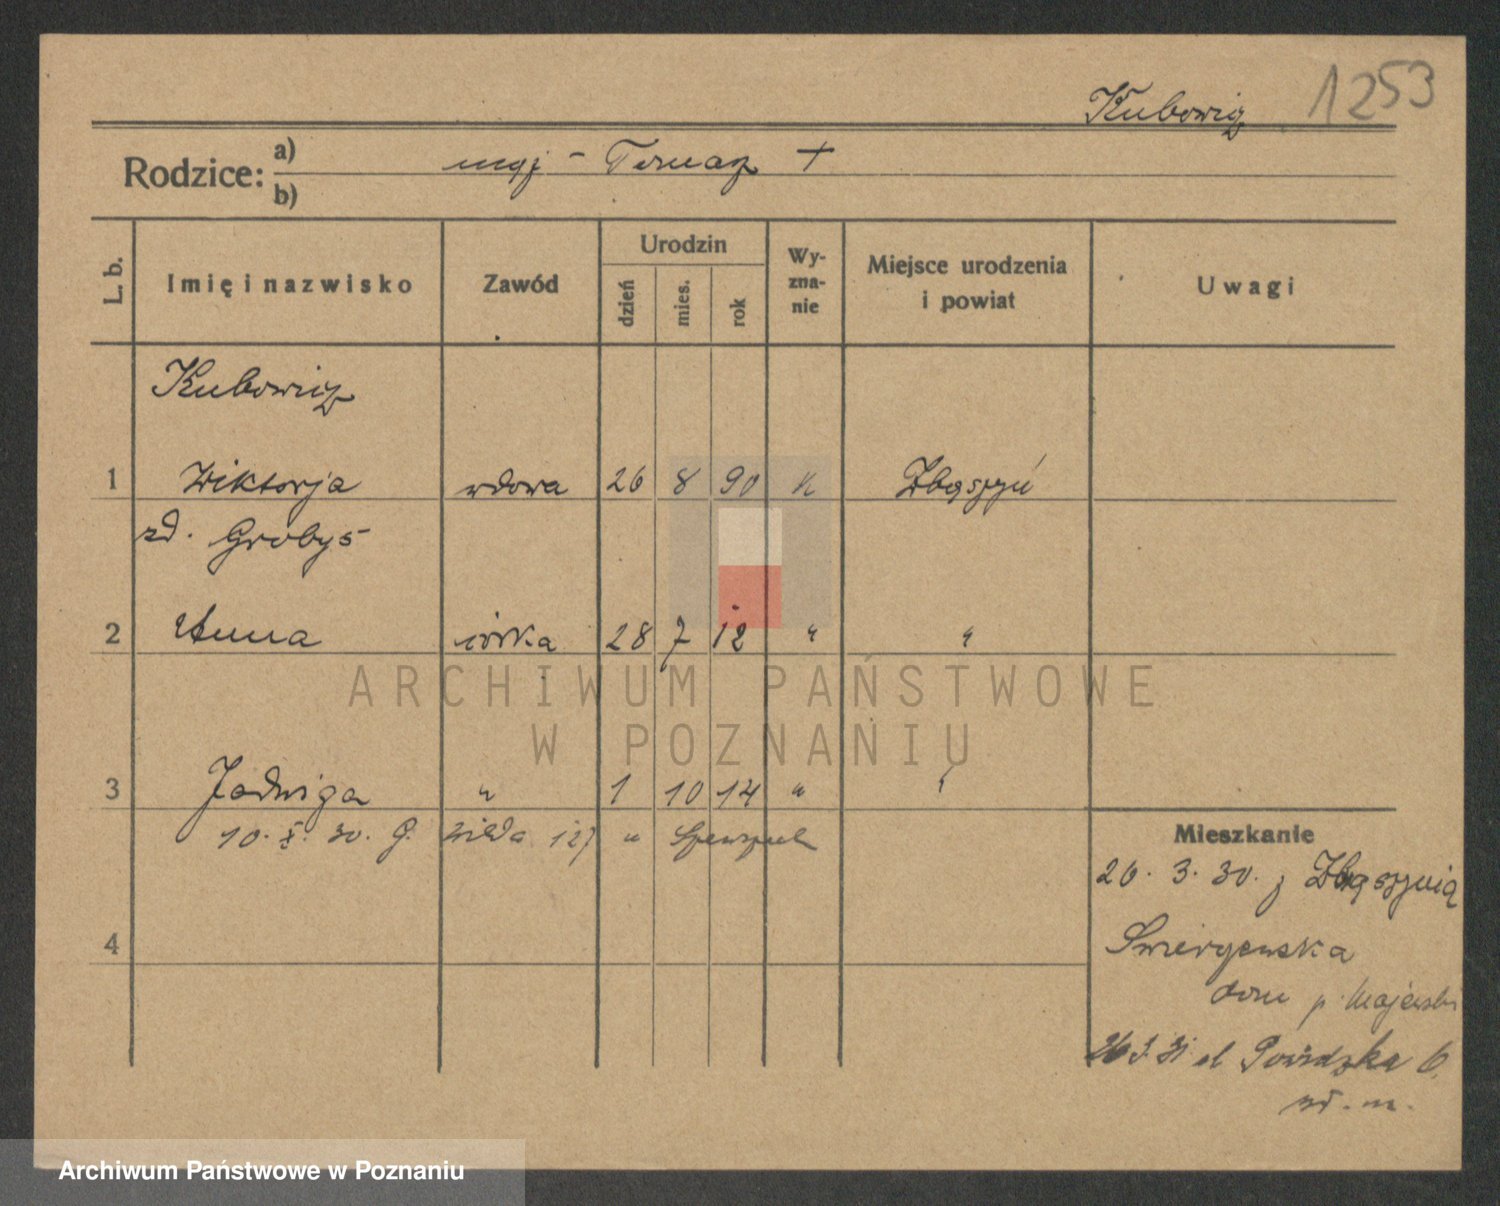 Kubowicz 1253
Rodzice: a) mąż – Tomasz +
b)
L. b. Imię i nazwisko Zawód Urodzin dzień mies. rok Wy-zna-nie Miejsce urodzenia i powiat Uwagi
Kubowicz
1 Wiktorja wdowa 26 8 90 k Zbąszyń
zd. Grobys
2 Anna córka 28 7 12 " "
3 Jadwiga " 1 10 14 " "
10. X. 30. G. Wilda 127 "
Mieszkanie
26. 3. 30. z Zbąszynia
4
dom p. Majewski
26 3. 31 ul Powidzka 6.
ARCHIWUM PAŃSTWOWE
W POZNANIU
Archiwum Państwowe w Poznaniu